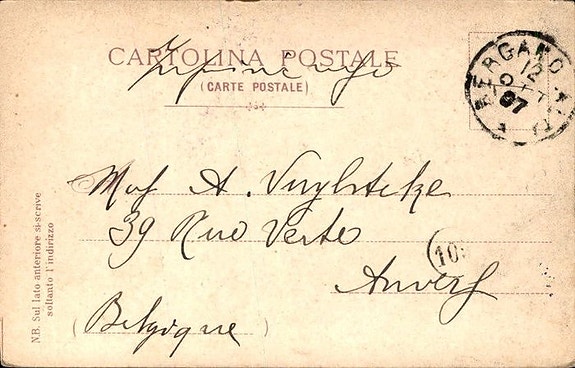 CARTOLINA POSTALE
(CARTE POSTALE)
BERGAMO ALTA
12
OTT
97
A. Vuylsteke
39 Rue Verte
103
Anvers
(Belgique)
N.B. Sul lato anteriore si scrive
soltanto l'indirizzo